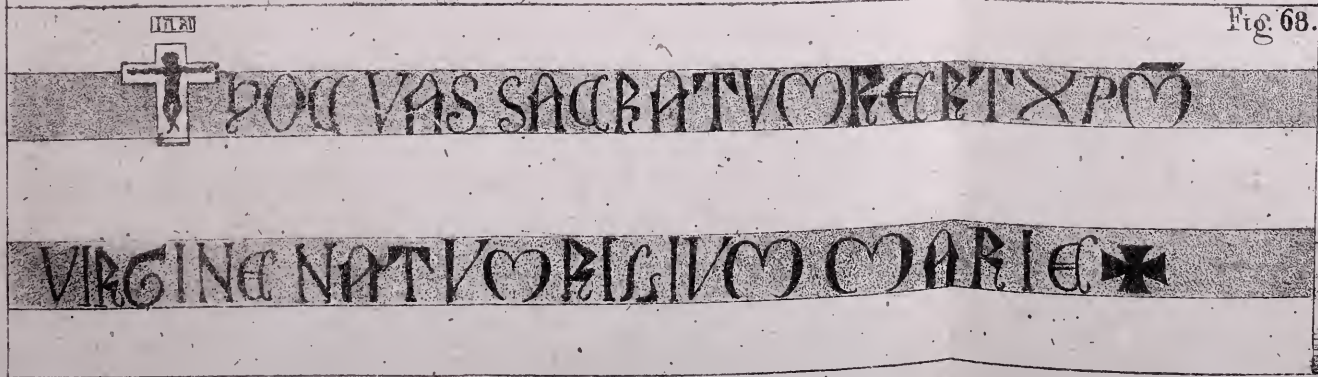 Fig. 68.
INRI
HOC VAS SACRATVM FERT XPM̄
VIRGINE NATVM FILIVM MARIE